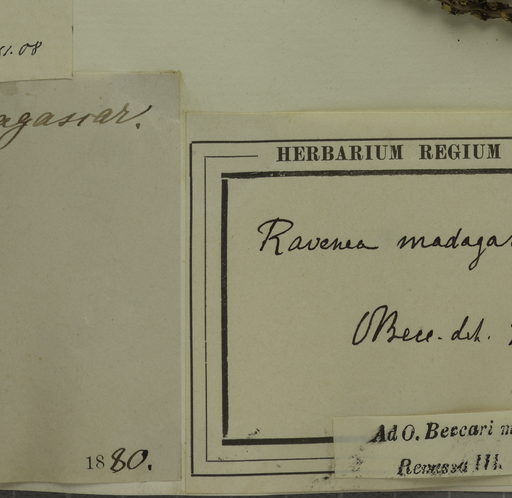 .08
agascar.
1880.
HERBARIUM REGIUM
Ravenea madagas
OBecc. det.
Ad O. Beccari m
Remissa III.